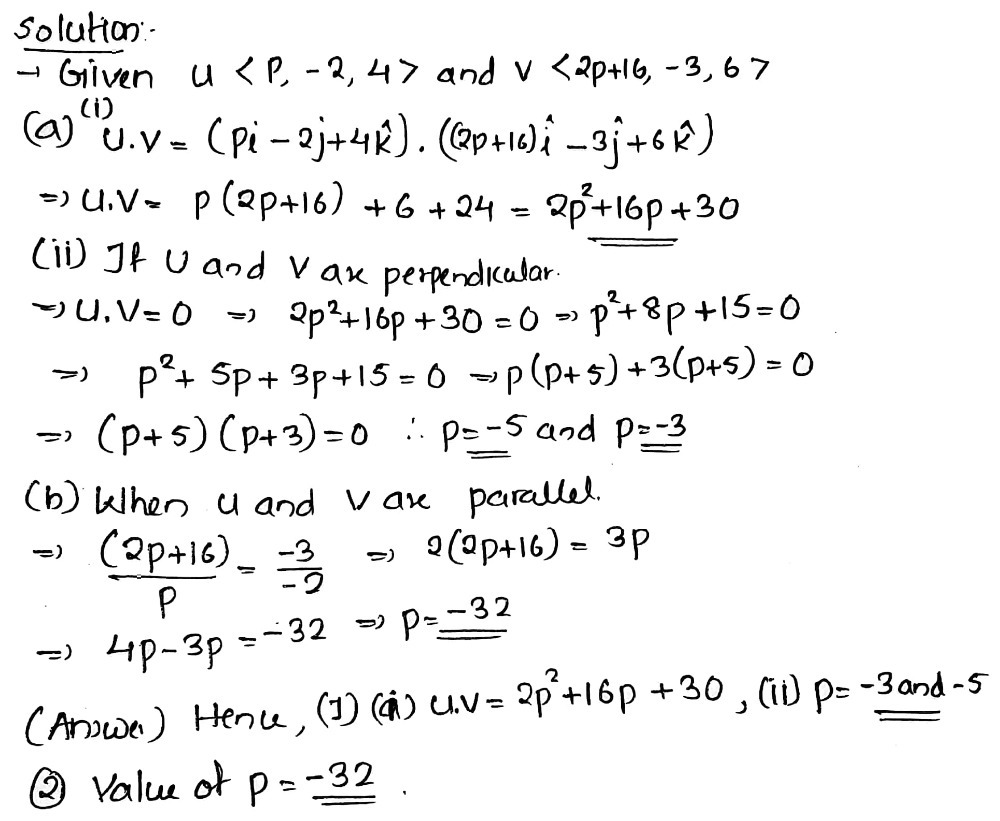 Solution:-
→ Giiven u <P, -2, 4> and v <2p+16, -3, 6>
(a) (i) u.v = (pi - 2j+4k̂). ((2p+16)î - 3ĵ+6k̂)
=> u.v = p(2p+16) + 6 + 24 = 2p²+16p+30
(ii) If U and V are perpendicular.
=> U.V=0 => 2p²+16p+30=0 => p²+8p+15=0
=> p²+ 5p+3p+15=0 => p(p+5)+3(p+5)=0
=> (p+5)(p+3)=0 ∴ p=-5 and p=-3
(b) When u and v are parallel.
=> (2p+16)/p = -3/-2 => 2(2p+16) = 3p
=> 4p-3p = -32 => p=-32
(Answer) Hence, (1) (i) u.v = 2p²+16p+30, (ii) p= -3 and -5
② Value of p = -32.